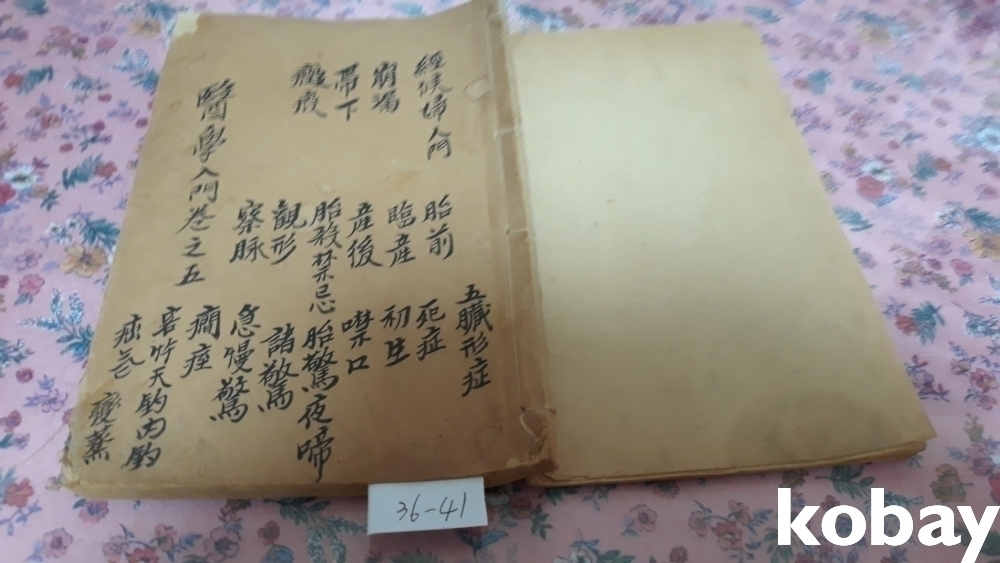 經候婦人門
崩漏
帶下
癥瘕
胎前
臨産
産後
胎殺禁忌
觀形
察脉
五臟形症
死症
初生
噤口
胎驚夜啼
諸驚
急慢驚
癎痓
客忤天釣内釣
疝氣
變蒸
醫學入門卷之五
36-41
kobay